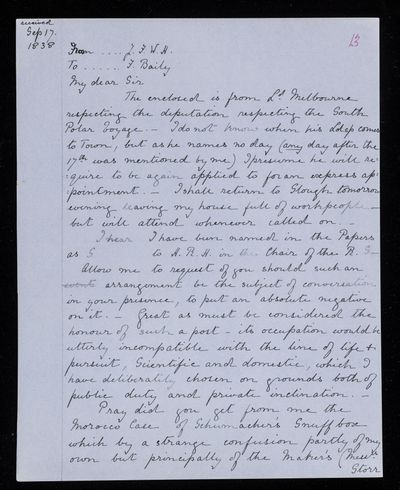 received
Sep 17.
1838
13
From .... J. F. W. H.
To ...... F. Baily
My dear Sir
The enclosed is from Ld Melbourne
respecting the deputation respecting the South
Polar Voyage. — I do not know when his Ldsp comes
to Town, but as he names no day (any day after the
17th was mentioned by me) I presume he will re-
:quire to be again applied to for an express ap
:pointment. — I shall return to Slough tomorrow
evening leaving my house full of workpeople —
but will attend whenever called on —
I hear I have been named in the Papers
as S to H. R. H. in the Chair of the R. S—
Allow me to request if you should such an
arrangement be the subject of conversation
in your presence, to put an absolute negative
on it. — Great as must be considered the
honour of such a post — its occupation would be
utterly incompatible with the line of life &
pursuit, Scientific and domestic, which I
have deliberately chosen on grounds both of
public duty and private inclination. —
Pray did you get from me the
Morocco Case of Schumacher's Snuff box
which by a strange confusion partly of my
own but principally of the Maker's (Messrs.
Storr